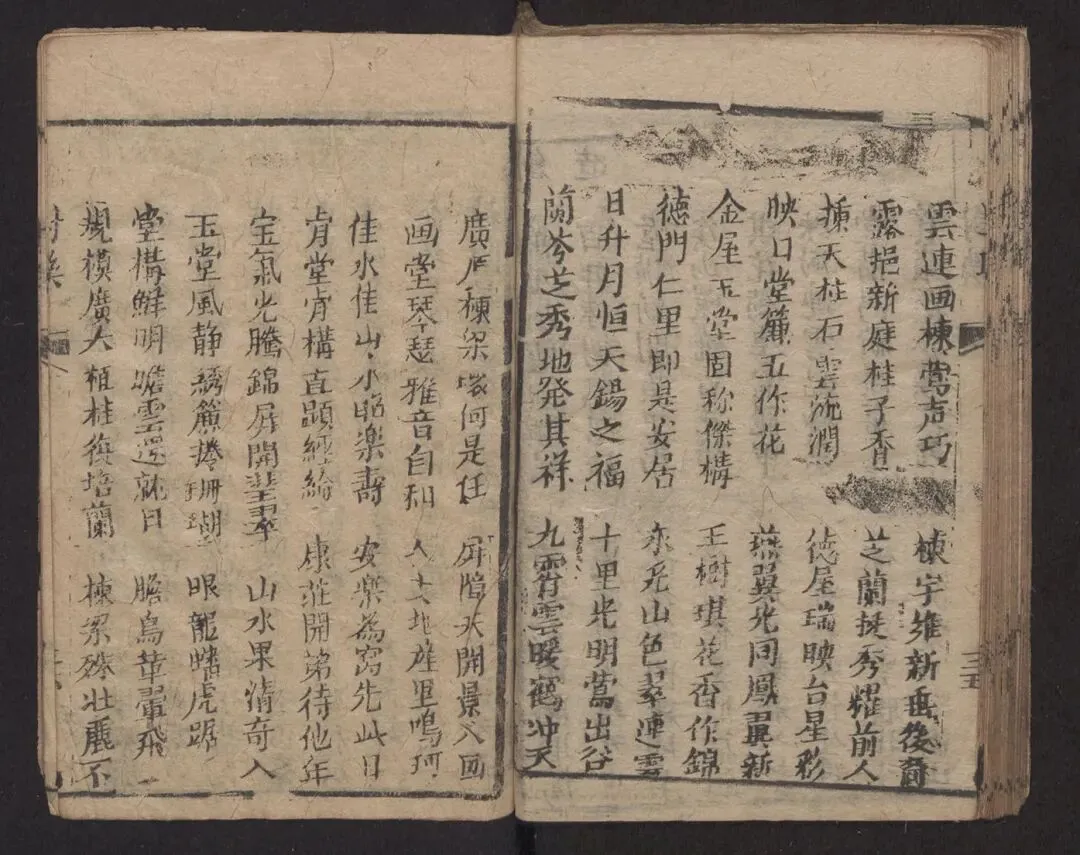 雲連画棟莺声巧 棟宇維新垂後裔
露挹新庭桂子香 芝蘭挺秀耀前人
擎天柱石雲流潤 德屋瑞映台星彩
映日堂簾五作花 燕翼光同鳳翼新
金屋玉堂固称傑構 玉樹琪花香作錦
德門仁里即是安居 永見山色翠連雲
日升月恒天錫之福 十里光明莺出谷
蘭岑芝秀地発其祥 九霄雲暖鶴冲天
三五
廣厦棟梁 何是任 屏障大開景入画
画堂琴瑟雅音自和 人 地雄里鳴珂
佳水佳山山水昭楽壽 安楽為窩先此日
肯堂肯構直顕經綸 康荘開第待他年
宝氣光騰錦屏開翡翠 山水果清奇入
玉堂風静綉簾捲珊瑚 眼龍蟠虎踞
堂構鮮明瞻雲還就日 瞻鳥革翬飛
規模廣大植桂復培蘭 棟梁殊壮麗不